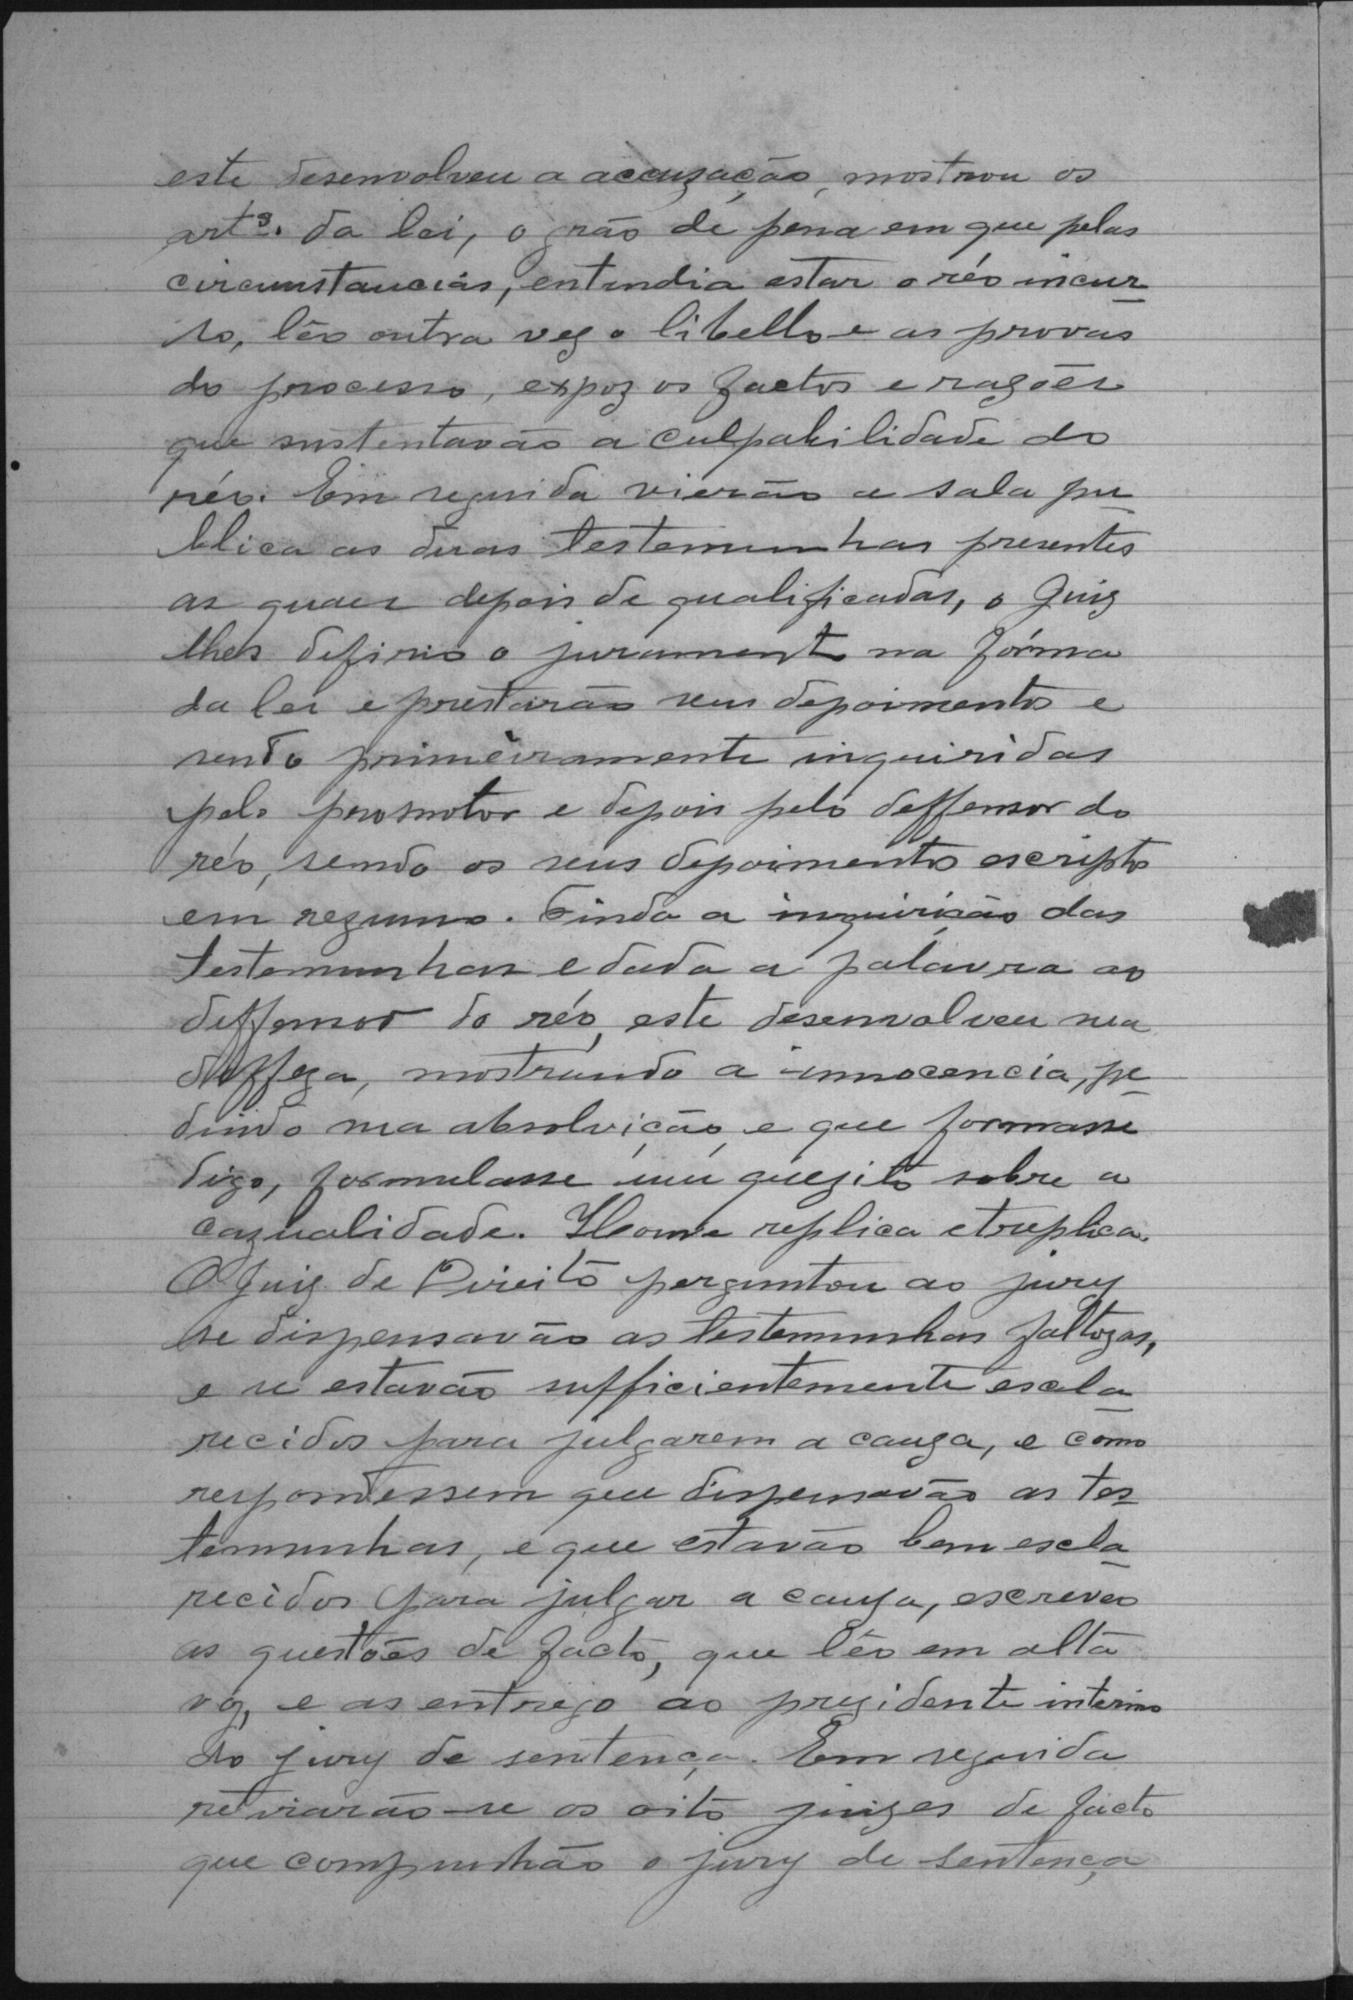 este desenvolveu a accuzação, mostrou os
artˢ. da lei, o gráo de pena em que pelas
circumstancias, entendia estar o réo incur-
so, lêo outra vez o libello e as provas
do processo, expoz os factos e razões
que sustentavão a culpabilidade do
réo. Em seguida vierão a sala pu-
blica as duas testemunhas presentes
as quaes depois de qualificadas, o Juiz
lhes defirio o juramento na fórma
da lei e prestarão seus depoimentos e
sendo primeiramente inquiridas
pelo promotor e depois pelo deffensor do
réo, sendo os seus depoimentos escriptos
em rezumo. Finda a inquirição das
testemunhas e dada a palavra ao
deffensor do réo, este desenvolveu sua
deffeza, mostrando a innocencia, pe-
dindo sua absolvição, e que formasse
digo, formulasse um quezito sobre a
cazualidade. Houve replica e treplica.
O Juiz de Direito perguntou ao jury
se dispensavão as testemunhas faltozas,
e se estavão sufficientemente escla-
recidos para julgarem a cauza, e como
respondessem que dispensavão as tes-
temunhas, e que estavão bem escla-
recidos para julgar a cauza, escreveo
as questões de facto, que lêo em alta
voz, e as entrego ao prezidente interino
do jury de sentença. Em seguida
retirarão-se os oito juizes de facto
que compunhão o jury de sentença